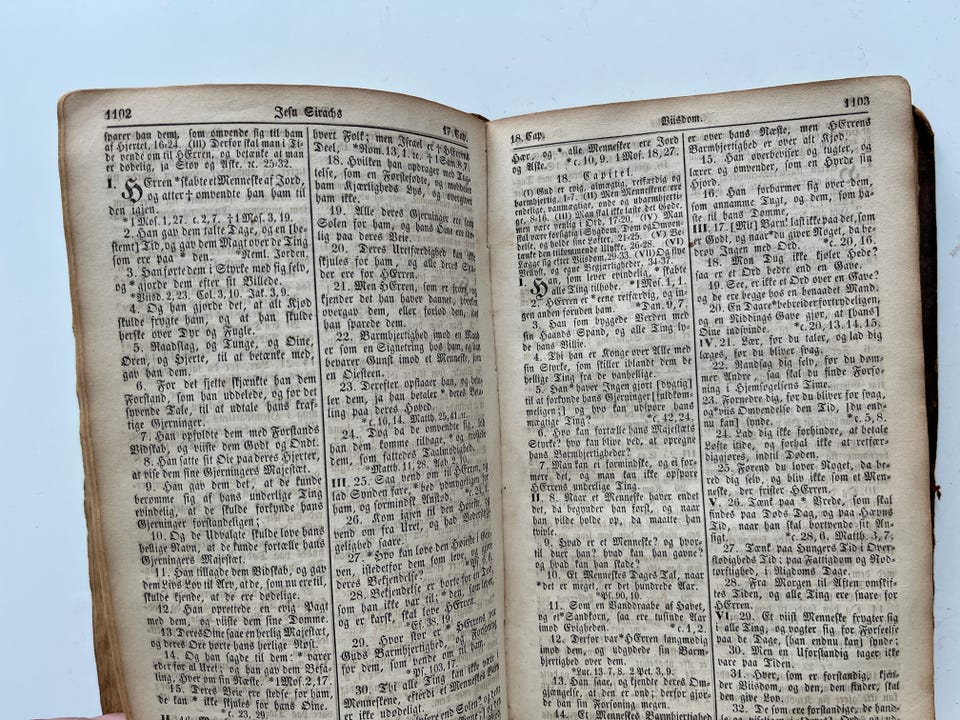 1102
Jesu Sirachs
17 Cap.
sparer han dem, som omvende sig til ham
af Hjertet, 16-24. (III) Derfor skal man i Ti-
de vende om til HErren, og betænke, at man
er dødelig, ja Støv og Aske. rc. 25-32.
I. HErren * skabte et Menneske af Jord,
og atter † omvendte han ham til
den igjen.
*1 Mos. 1, 27. c. 2, 7. †1 Mos. 3, 19.
2. Han gav dem talte Dage, og en [be-
stemt] Tid, og gav dem Magt over de Ting
som ere paa * den. *Neml. Jorden.
3. Han førte dem i Styrke med sig selv,
og * gjorde dem efter sit Billede.
*Viisd. 2, 23. Col. 3, 10. Jak. 3, 9.
4. Og han gjorde det, at alt Kjød
skulde frygte ham, og at han skulde
herske over Dyr og Fugle.
5. Raadslag, og Tunge, og Øine,
Øren, og Hjerte, til at betænke med,
gav han dem.
6. For det sjette skjænkte han dem
Forstand, som han uddelede, og for det
syvende Tale, til at udtale hans kraf-
tige Gjerninger.
7. Han opfyldte dem med Forstands
Vidskab, og viiste dem Godt og Ondt.
8. Han satte sit Øie paa deres Hjerter,
at vise dem sine Gjerningers Majestæt.
9. Han gav dem det, at de kunde
berømme sig af hans underlige Ting
evindelig, at de skulde forkynde hans
Gjerninger forstandeligen;
10. Og de Udvalgte skulde love hans
hellige Navn, at de kunde fortælle hans
Gjerningers Majestæt.
11. Han tillagde dem Vidskab, og gav
dem Livs Lov til Arv, at de, som nu ere til,
skulde kjende, at de ere dødelige.
12. Han oprettede en evig Pagt
med dem, og viiste dem sine Domme.
13. Deres Øine saae en herlig Majestæt,
og deres Øre hørte hans herlige Røst.
14. Og han sagde til dem: * varer
eder for al Uret; og han gav dem Befa-
ling, Hver om sin Næste. *1 Mos. 2, 17.
15. Deres Veie ere stedse for ham,
de kan * ikke skjules for hans Øine.
*c. 23, 29.
hvert Folk; men Israel er † HErrens
Deel, *Rom. 13, 1. rc. †1 Sam. 8, 7.
18. Hvilken han opdrager med Tug-
telse, som en Førstefødte, og meddeler
ham Kjærligheds Lys, og overgiver
ham ikke.
19. Alle deres Gjerninger ere som
Solen for ham, og hans Øine ere ide-
lig paa deres Veie.
20. Deres Uretfærdighed kan ikke
skjules for ham, og alle deres Syn-
der ere for HErren.
21. Men HErren, som er from, og
kjender det han haver dannet, hverken
overgav dem, eller forlod dem, idet
han sparede dem.
22. Barmhjertighed imod en Mand
er som en Signetring hos ham, og han
bevarer Gunst imod et Menneske, som
en Øiesteen.
23. Derefter opstaaer han, og beta-
ler dem, ja han betaler * deres Beta-
ling paa deres Hoved.
*c. 16, 14. Matth. 25, 41. rc.
24. Dog da de omvendte sig, lod
han dem komme tilbage, og * trøstede
dem, som fattedes Taalmodighed.
*Matth. 11, 28.
III. 25. Saa vend om til HErren, og
lad Synden fare, * bed ydmygeligen for
ham, og formindsk Anstød.
26. Kom igjen til den Høieste og
vend om fra Uret, og had Vederstyg-
gelighed saare.
27. * Hvo kan love den Høieste i Grav-
en, istedetfor dem som leve, og
deres Bekjendelse?
28. Bekjendelse er borte fra en Død,
som han ikke var til; * den, som lever
og er karsk, skal love HErren.
*Es. 38, 19.
29. Hvor stor er * HErrens vor
Guds Barmhjertighed, og Forsoning
for dem, som vende om til ham.
*Ps. 103, 17.
30. Thi alle Ting kan ikke være i
Mennesker, efterdi et Menneskes Søn
er ikke udødelig.
18. Cap.
Viisdom.
1103
Hær, og * alle Mennesker ere Jord
og Aske. *c. 10, 9. 1 Mos. 18, 27.
18. Capitel.
(I) Gud er evig, almægtig, retfærdig og
barmhjertig, 1-7. (II) Men Menneskene ere
elendige, vanmægtige, onde og ubarmhjertige,
8-16. (III) Man skal ikke laste det Gode,
men være venlig i Ord, 17-20. (IV) Man
skal i Tide vogte sig for Sygdom, Dom og Omven-
delse, og holde sine Løfter, 21-25. (V) Be-
tænke den tilkommende Ulykke, 26-28. (VI)
Lægge sig efter Viisdom, 29-33. (VII) Og flye
Vellyst, og egne Begjærligheder, 34-37.
I. Han, som lever evindelig, * skabte
alle Ting tilhobe. *1 Mos. 1, 1.
2. HErren er * ene retfærdig, og in-
gen anden foruden ham. *Dan. 9, 7.
3. Han som byggede Verden med
sin Haands Spand, og alle Ting ly-
de hans Villie.
4. Thi han er Konge over Alle med
sin Styrke, som skiller iblandt dem de
hellige Ting fra de vanhellige.
5. Han * haver Ingen gjort [dygtig]
til at forkynde hans Gjerninger [fuldkom-
meligen;] og hvo kan udspore hans
mægtige Ting? *c. 42, 24.
6. Hvo kan fortælle hans Majestæts
Styrke? hvo kan blive ved, at opregne
hans Barmhjertigheder?
7. Man kan ei formindske, og ei for-
mere det, og man kan ikke opspore
HErrens underlige Ting.
II. 8. Naar et Menneske haver endet
det, da begynder han først, og naar
han vilde holde op, da maatte han
tvivle.
9. Hvad er et Menneske? og hvor-
til duer han? hvad kan han gavne?
og hvad kan han skade?
10. Et Menneskes Dages Tal, naar
det er meget, er det hundrede Aar.
*Ps. 90, 10.
11. Som en Vanddraabe af Havet,
og et * Sandkorn, saa ere tusinde Aar
imod Evigheden. *c. 1, 2.
12. Derfor var * HErren langmodig
imod dem, og udgydede sin Barm-
hjertighed over dem.
*Luc. 13, 7, 8. 2 Pet. 3, 9.
13. Han saae, og kjendte deres Om-
gjængelse, at den er ond; derfor gjor-
de han sin Forsoning megen.
14. Et Menneskes Barmhjertighed
er over hans Næste, men HErrens
Barmhjertighed er over alt Kjød.
15. Han overbeviser og tugter, og
lærer og omvender, som en Hyrde sin
Hjord.
16. Han forbarmer sig over dem,
som annamme Tugt, og dem, som ha-
ste til hans Domme.
III. 17. [Mit] Barn! last ikke paa det, som
er Godt, og naar * du giver Noget, da be-
drøv Ingen med Ord. *c. 20, 16.
18. Mon Dug ikke kjøler Hede?
saa er et Ord bedre end en Gave.
19. See, er ikke et Ord over en Gave?
og de ere begge hos en benaadet Mand.
20. En Daare * bebreider fortrydeligen,
og en Niddings Gave gjør, at [hans]
Øine indsvinde. *c. 20, 13. 14. 15.
IV. 21. Lær, før du taler, og lad dig
læges, før du bliver svag.
22. Randsag dig selv, før du døm-
mer Andre, saa skal du finde Forso-
ning i Hjemsøgelsens Time.
23. Fornedre dig, før du bliver svag,
og * viis Omvendelse den Tid, [du end-
nu kan] synde. *c. 5, 8.
24. Lad dig ikke forhindre, at betale
Løfte itide, og forhal ikke at retfær-
diggjøres, indtil Døden.
25. Førend du lover Noget, da be-
red dig selv, og bliv ikke som et Men-
neske, der frister HErren.
V. 26. Tænk paa * Vrede, som skal
findes paa Døds Dag, og paa Hævns
Tid, naar han skal bortvende sit An-
sigt. *c. 28, 6. Matth. 3, 7.
27. Tænk paa Hungers Tid i Over-
flødigheds Tid; paa Fattigdom og Nød-
tørftighed, i Rigdoms Dage.
28. Fra Morgen til Aften omskif-
tes Tiden, og alle Ting ere snare for
HErren.
VI. 29. Et viist Menneske frygter sig
i alle Ting, og vogter sig for Forseelse
paa de Dage, [han endnu kan] synde;
30. Men en Uforstandig tager ikke
vare paa Tiden.
31. Hver, som er forstandig, kjen-
der Viisdom, og den, den finder, skal
den give Lov.
32. De som ere forstandige, de hand-